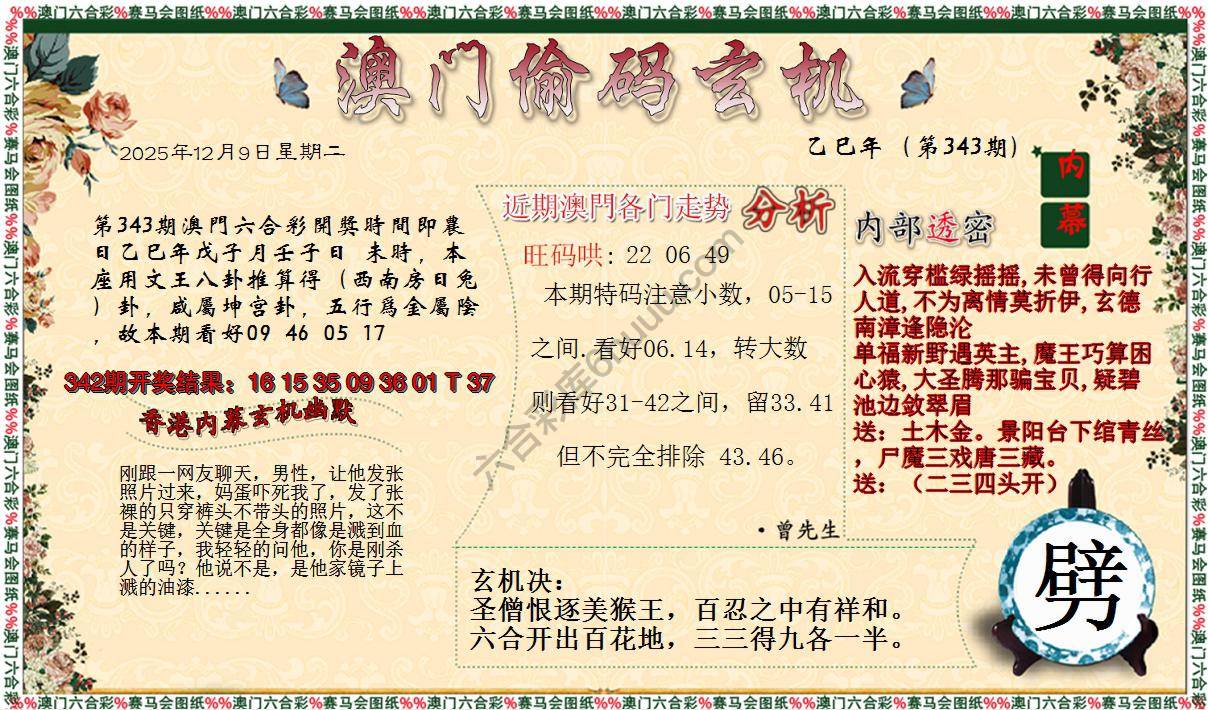 %%澳门六合彩%赛马会图纸%%澳门六合彩%赛马会图纸%%澳门六合彩%赛马会图纸%%澳门六合彩%赛马会图纸%%澳门六合彩%赛马会图纸%%澳门六合彩%赛马会图纸%%
澳门偷码玄机
2025年12月9日星期二
乙巳年（第343期）
内
幕
第343期澳門六合彩開獎時間即農
日乙巳年戊子月壬子日 未時，本
座用文王八卦推算得（西南房日兔
）卦，咸屬坤宫卦，五行爲金屬陰
，故本期看好09 46 05 17
342期开奖结果：16 15 35 09 36 01 T 37
香港内幕玄机幽默
刚跟一网友聊天，男性，让他发张
照片过来，妈蛋吓死我了，发了张
裸的只穿裤头不带头的照片，这不
是关键，关键是全身都像是溅到血
的样子，我轻轻的问他，你是刚杀
人了吗？他说不是，是他家镜子上
溅的油漆......
近期澳門各门走势 分析
旺码哄: 22 06 49
本期特码注意小数，05-15
之间.看好06.14，转大数
则看好31-42之间，留33.41
但不完全排除 43.46。
·曾先生
内部透密
入流穿槛绿摇摇,未曾得向行
人道,不为离情莫折伊,玄德
南漳逢隐沦
单福新野遇英主,魔王巧算困
心猿,大圣腾那骗宝贝,疑碧
池边敛翠眉
送：土木金。景阳台下绾青丝
，尸魔三戏唐三藏。
送：（二三四头开）
玄机决：
圣僧恨逐美猴王，百忍之中有祥和。
六合开出百花地，三三得九各一半。
劈
%%澳门六合彩%赛马会图纸%%澳门六合彩%赛马会图纸%%澳门六合彩%赛马会图纸%%澳门六合彩%赛马会图纸%%澳门六合彩%赛马会图纸%%澳门六合彩%赛马会图纸%%